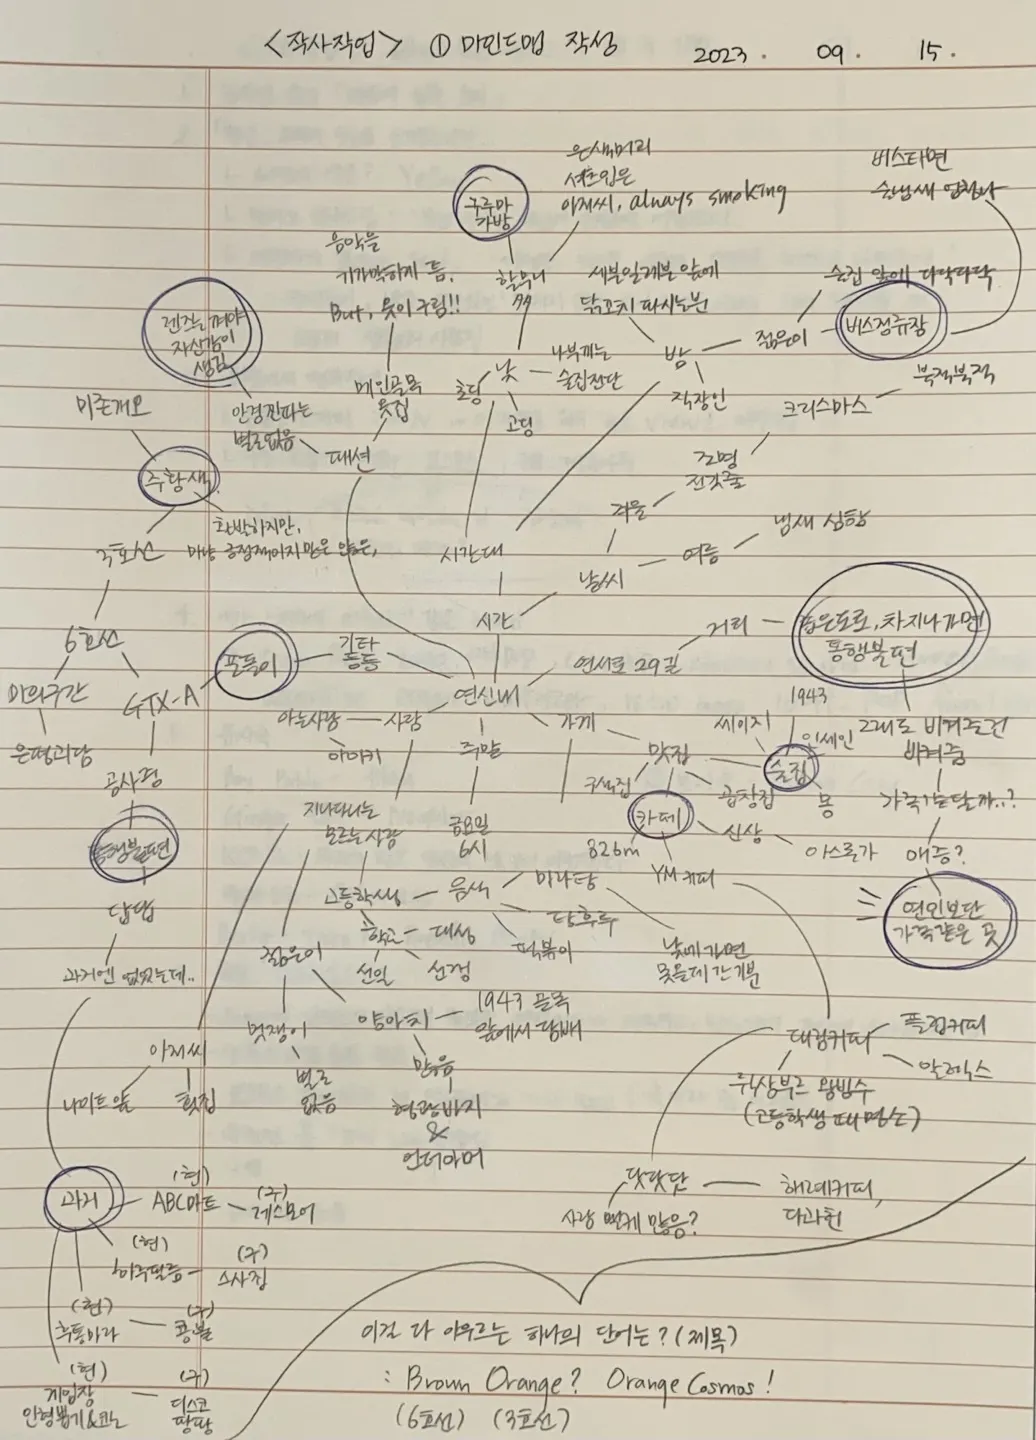 <작사작업> ① 마인드맵 작성
2023. 09. 15.
은색머리
셔츠입은
아저씨, always smoking
버스타면
술냄새 엄청나
구루마
가방
음악을
기가막히게 틈.
But, 옷이 구림!!
할무니
세븐일레븐 앞에
닭꼬치 파시는분
술집 앞에 다닥다닥
버스정류장
렌즈는 껴야
자신감이
생김
메인골목
옷집
낮
초딩
고딩
나부끼는
술집전단
밤
젊은이
직장인
북적북적
크리스마스
미존개오
안경찐따는
별로없음
패션
조명
전깃줄
주황색
겨울
화발하지만,
마냥 긍정적이지만은 않은,
냄새 심함
3호선
시간대
날씨
여름
6호선
시간
거리
좁은도로, 차지나가면
통행불편
푸릉이
기타
등등
연신내
연서로 29길
마의구간
GTX-A
은평괴담
공사펑
통행불편
답답
과거엔 없었는데..
아는사람
사람
아미키
주말
가게
맛집
세이지
1943
인세인
그래도 비켜줄건
비켜줌
술집
구석집
곱창집
몽
가족기는달까..?
카페
신상
아스루가
애증?
826m
YM커피
연인보단
가족같은 곳
지나다니는
모르는사람
금요일
6시
고등학생
음식
마라탕
탕후루
떡볶이
낮에가면
못올데 간 기분
학교
대성
선일
선정
젊은이
멋쟁이
별로
없음
양아치
1943 골목
앞에서 담배
많음
형광바지
&
언더아머
아저씨
나이트 앞
횟집
대림커피
플림커피
알렉스
뤼상부르 왕빙수
(고등학생때 명소)
닷닷닷
해례커피,
다과헌
사람 왤케 많음?
과거
(현)
ABC마트
(구)
게스모어
(현)
히주필름
(구)
스사집
(현)
추통마라
(구)
콩불
(현)
게임장
인형뽑기&코노
(구)
디스코
팡팡
이걸 다 아우르는 하나의 단어는? (제목)
: Brown Orange? Orange Cosmos!
(6호선) (3호선)